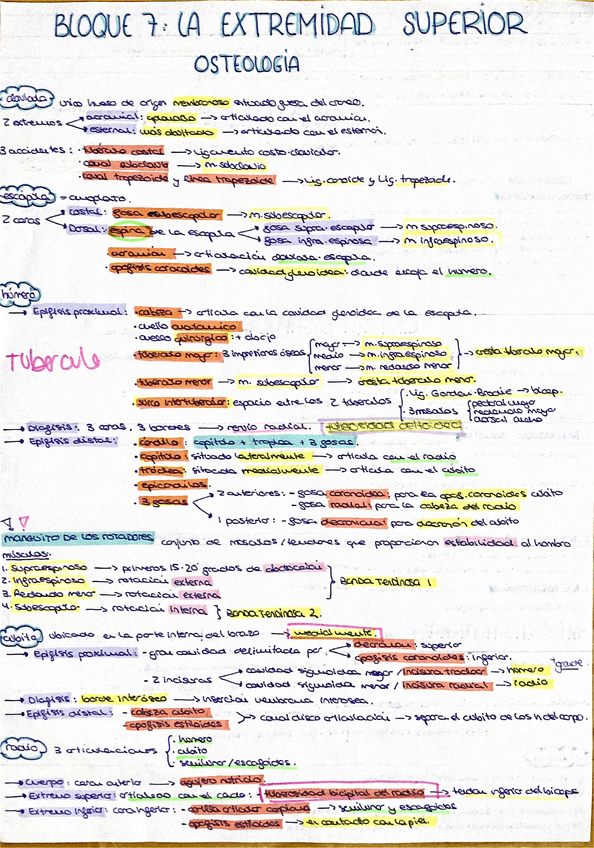 BLOQUE 7: LA EXTREMIDAD SUPERIOR
OSTEOLOGÍA
clavícula único hueso de origen membranoso situado fuera del cráneo.
2 extremos → acromial: aplanado → articulado con el acromion.
→ esternal: más abultado → articulado con el esternón.
3 accidentes: · tubérculo costal → ligamento costo-clavicular.
· canal subclavio → m. subclavio
· canal trapezoide y línea trapezoide → Lig. conoide y Lig. trapezoide.
escápula = omoplato.
2 caras → costal: fosa subescapular → m. subescapular.
→ Dorsal: espina de la escápula → fosa supra-escapular → m. supraespinoso.
→ fosa infra-espinosa → m. infraespinoso.
· acromion → articulación clavícula-escápula.
· apófisis coracoides → cavidad glenoidea: donde encaja el húmero.
húmero
→ Epífisis proximal: · cabeza → articula con la cavidad glenoidea de la escápula.
· cuello anatómico
· cuello quirúrgico: + abajo
Tubérculo
· tubérculo mayor: 3 impresiones óseas mayor → m. supraespinoso
medio → m. infraespinoso
menor → m. redondo menor
→ cresta tubérculo mayor.
· tubérculo menor → m. subescapular → cresta tubérculo menor.
· surco intertubercular: espacio entre los 2 tubérculos · Lig. Gordon-Brodie → bíceps.
· 3 músculos pectoral mayor
redondo mayor
dorsal ancho
→ Diáfisis: 3 caras, 3 bordes → nervio radial. tuberosidad deltoidea
→ Epífisis distal: · cóndilo: capítulo + tróclea + 3 fosas.
· capítulo: situado lateralmente → articula con el radio
· tróclea: situada medialmente → articula con el cúbito
· epicóndilos.
· 3 fosas → 2 anteriores: - fosa coronoidea: para la apóf. coronoides cúbito
- fosa radial: para la cabeza del radio
→ 1 posterior: - fosa olecraniana para olecranon del cúbito
MANGUITO DE LOS ROTADORES conjunto de músculos/tendones que proporcionan estabilidad al hombro
músculos:
1. Supraespinoso → primeros 15-20 grados de abducción
2. Infraespinoso → rotación externa
3. Redondo menor → rotación externa
} BANDA TENDINOSA 1
4. Subescapular → rotación interna } BANDA TENDINOSA 2.
cúbito ubicado en la parte interna del brazo → medialmente.
→ Epífisis proximal: - gran cavidad delimitada por → olecranon: superior
→ apófisis coronoides: inferior.
- 2 incisuras → cavidad sigmoidea mayor / incisura troclear → húmero +grande
→ cavidad sigmoidea menor / incisura radial → radio
→ Diáfisis: borde interóseo → inserción membrana interósea.
→ Epífisis distal: - cabeza cúbito
- apófisis estiloides
→ canal disco articulación → separa el cúbito de los h del carpo.
radio 3 articulaciones · húmero
· cúbito
· semilunar/escafoides.
→ Cuerpo: cara anterior → agujero nutricio.
→ Extremo superior: articulado con el codo: tuberosidad bicipital del radio → tendón inferior del bíceps
→ Extremo inferior: cara inferior: - carilla articular carpiana → semilunar y escafoides
- apófisis estiloides → en contacto con la piel.